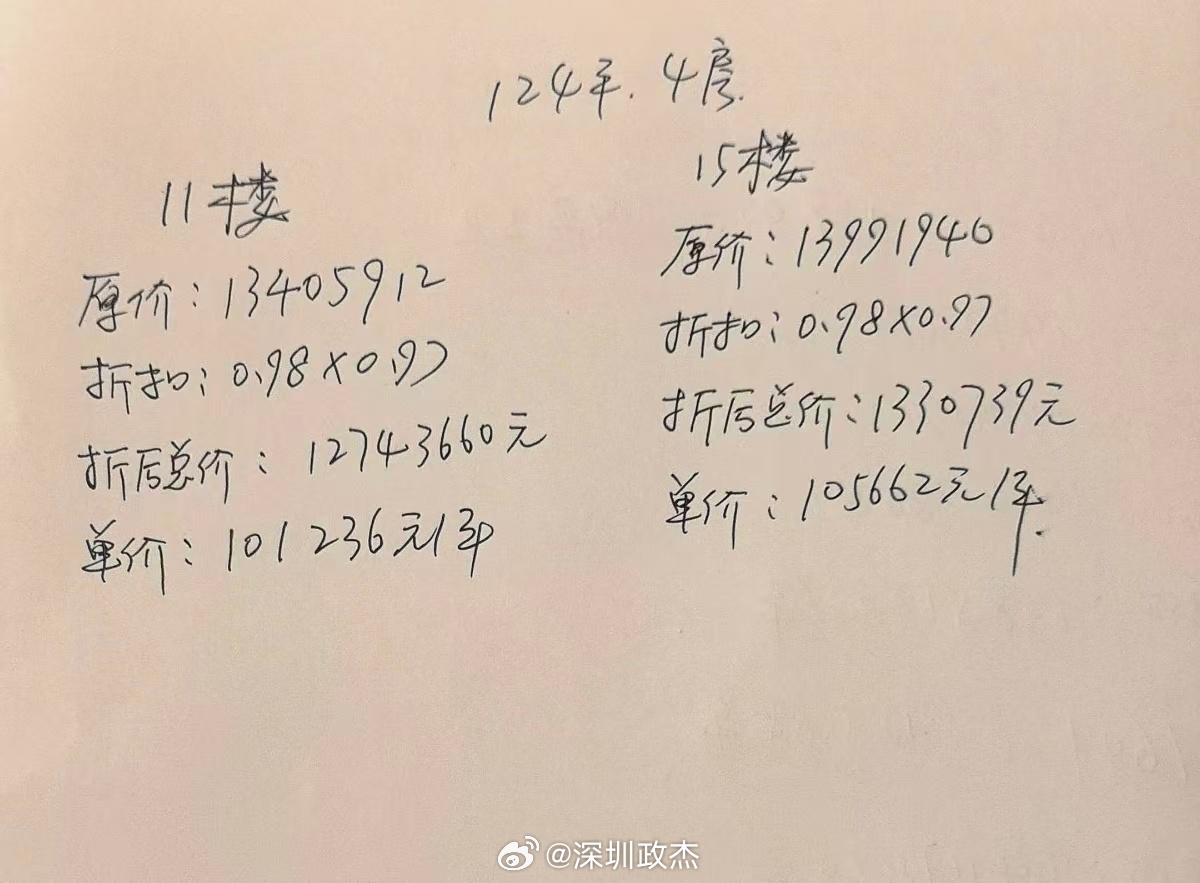 124平. 4房.
11楼
原价：13405912
折扣：0.98×0.97
折后总价：12743660元
单价：101236元/平
15楼
原价：13991940
折扣：0.98×0.97
折后总价：1330739元
单价：105662元/平.
@深圳政杰